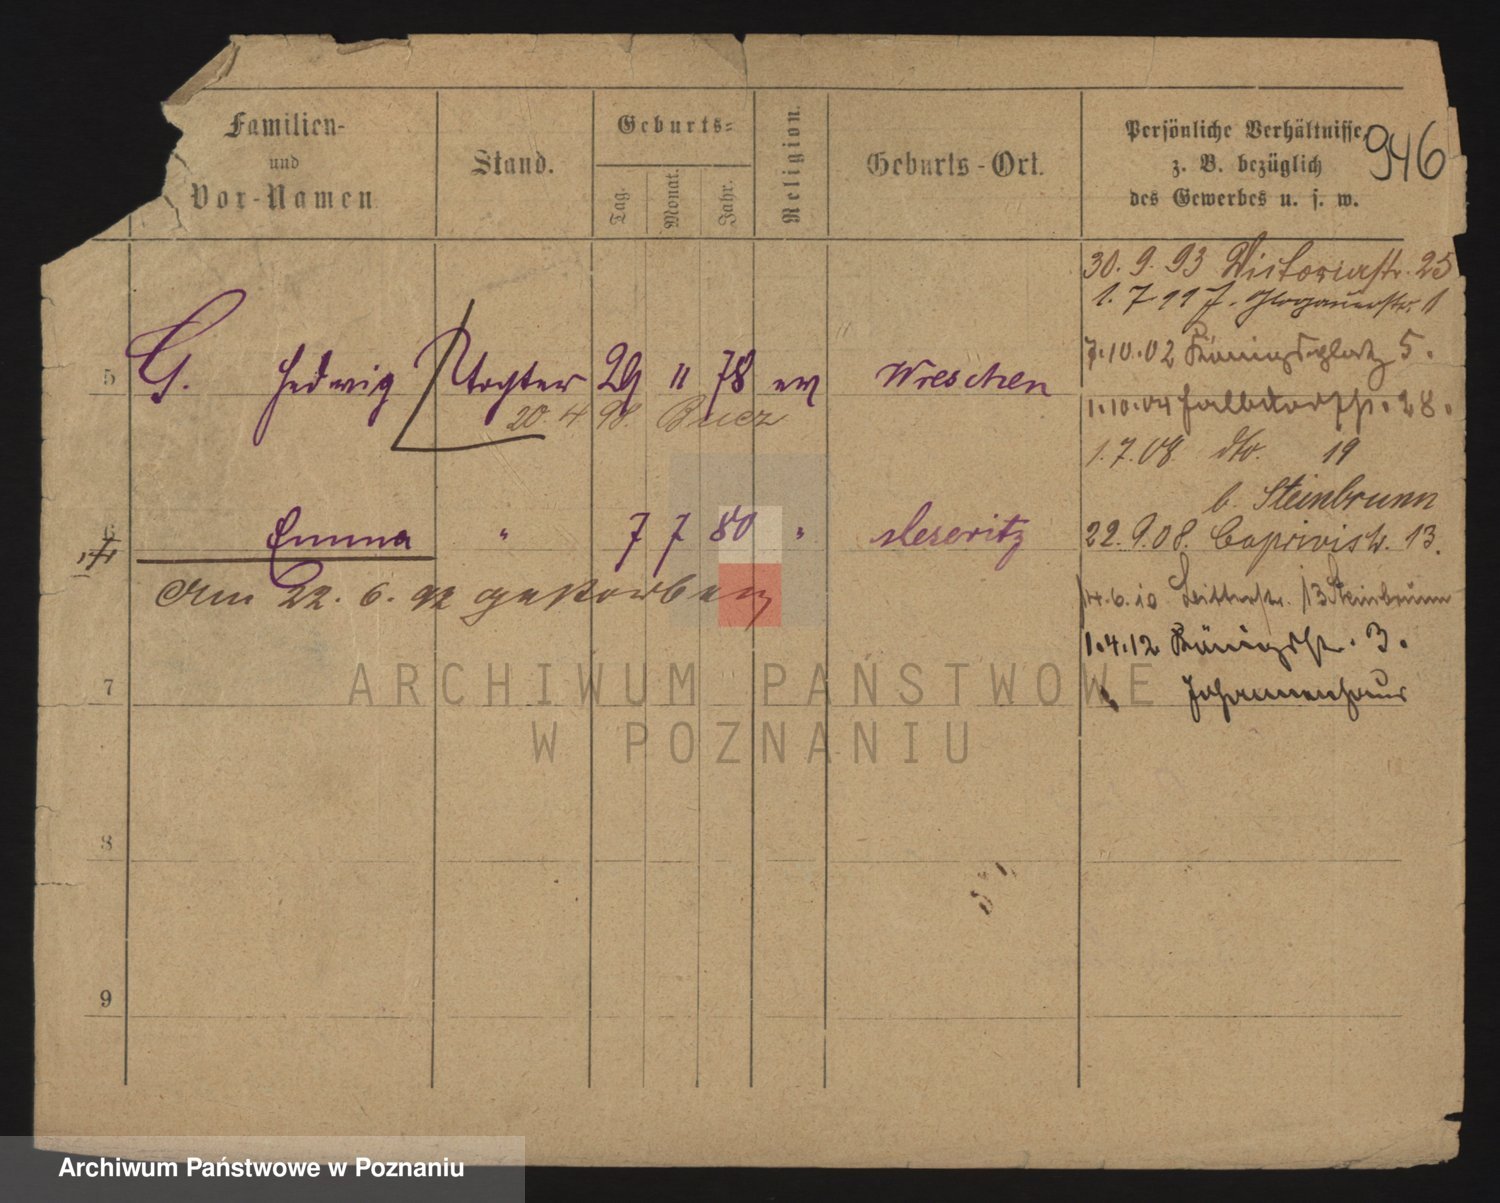 Familien-
und
Vor-Namen
Stand.
Geburts-
Tag.
Monat.
Jahr.
Religion.
Geburts-Ort.
Persönliche Verhältnisse,
z. B. bezüglich
des Gewerbes u. s. w.
946
30. 9. 93 Victoriastr. 25
1. 7 99 Glogauerstr. 1
7.10.02 Königsplatz 5.
1.10.04 28.
1.7.08 dto. 19
b. Steinbrunn
22.9.08. Caprivistr. 13.
14.6.10 13 Steinbrunn
1.4.12 Königstr. 3.
Johannenhaus
5 G. Hedwig Tochter 29 11 78 ev Wreschen
20. 4 98.
6 Emma " 7 7 80 " Meseritz
Am 22. 6. 92 gestorben
7
8
9
ARCHIWUM PAŃSTWOWE
W POZNANIU
Archiwum Państwowe w Poznaniu